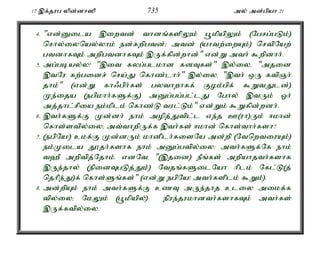 17 இக்தரப லின்னாஸி 735 அல் அன்பியா 21
4. "என்னுடைய இறைவன் வானங்களிலும் பூமியிலும் (பேசப்படும்)
சொல்லையெல்லாம் நன்கறிபவன்; அவன் (யாவற்றையும்) செவியேற்
பவனாகவும் அறிபவனாகவும் இருக்கின்றான்" என்று அவர் கூறினார்.
5. அப்படியல்ல! "இவை கலப்படமான கனவுகள்" இல்லை, "அதனை
இவரே கற்பனைச் செய்து கொண்டார்" இல்லை, "இவர் ஒரு கவிஞர்
தாம்" (என்று காஃபிர்கள் பலவாறாகக் குழம்பிக் கூறுவதுடன்)
முந்தைய (நபிமார்களுக்கு) அனுப்பப்பட்டது போல் இவரும் ஓர்
அத்தாட்சியை நம்மிடம் கொண்டு வரட்டும்" என்றும் கூறுகின்றனர்.
6. இவர்களுக்கு முன்னர் நாம் அழித்துவிட்ட எந்த ஊர(ாரு)ம் ஈமான்
கொள்ளவில்லை; அவ்வாறிருக்க இவர்கள் ஈமான் கொள்வார்களா?
7. (நபியே!) உமக்கு முன்னரும் மானிடர்களையே அன்றி (வேறெவரையும்)
நம்முடைய தூதர்களாக நாம் அனுப்பவில்லை; அவர்களுக்கே நாம்
வஹீ அறிவித்தோம். எனவே, "(இதனை) நீங்கள் அறியாதவர்களாக
இருந்தால் (நினைவுபடுத்தும்) வேதங்களுடையோரிடம் கேட்டு(த்
தெரிந்து)க் கொள்ளுங்கள்" (என்று நபியே! அவர்களிடம் கூறும்).
8. அன்றியும் நாம் அவர்களுக்கு உணவு அருந்தாத உடலை அமைக்க
வில்லை; மேலும் (பூமியில்) நிரந்தரமானவர்களாகவும் அவர்கள்
இருக்கவில்லை.